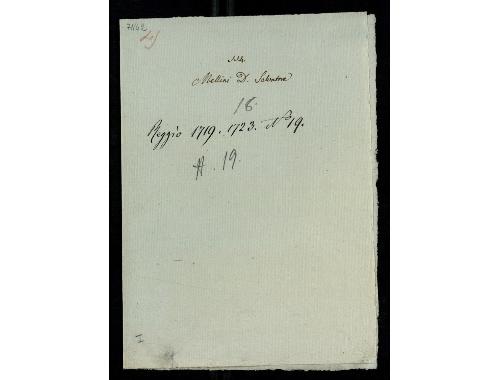 71142
Mellini D. Salvatore
18.
Reggio 1719. 1723. N.° 19.
A. 19.
I